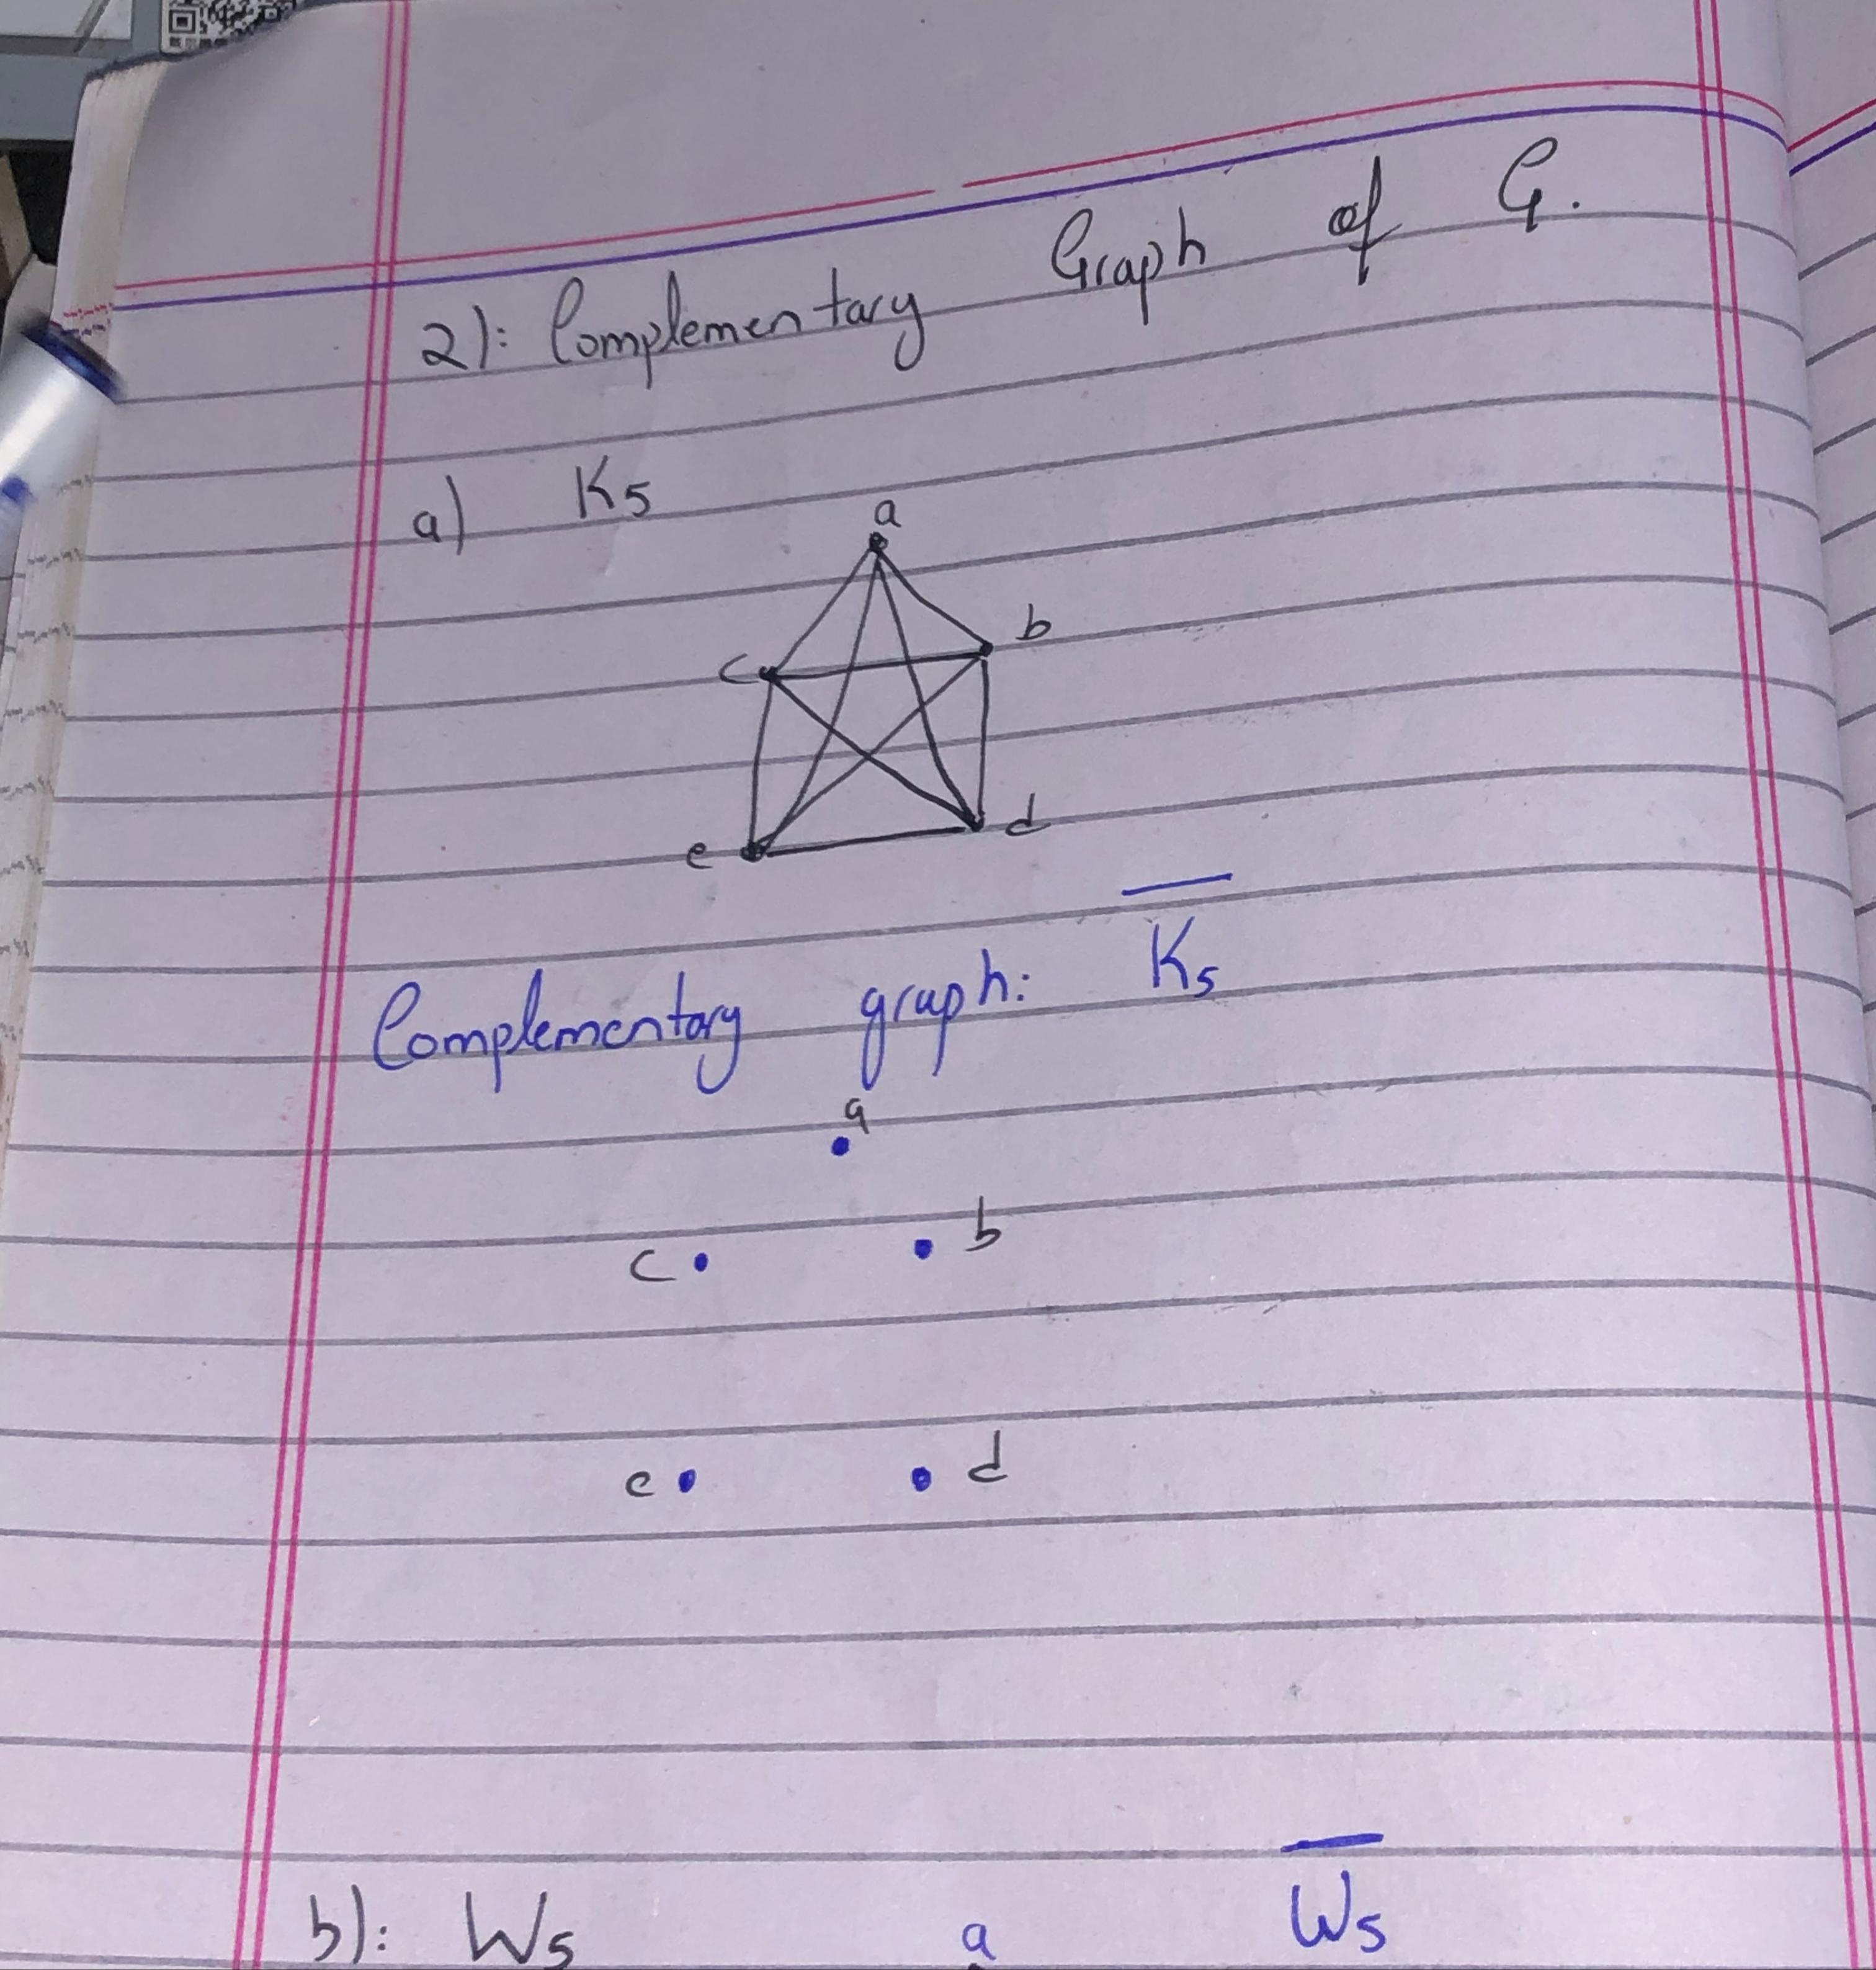 2): Complementary Graph of G.
a) K5
a
b
c
d
e
Complementary graph: K̅5̅
a
b
c
e
d
b): W5
a
W̅5̅